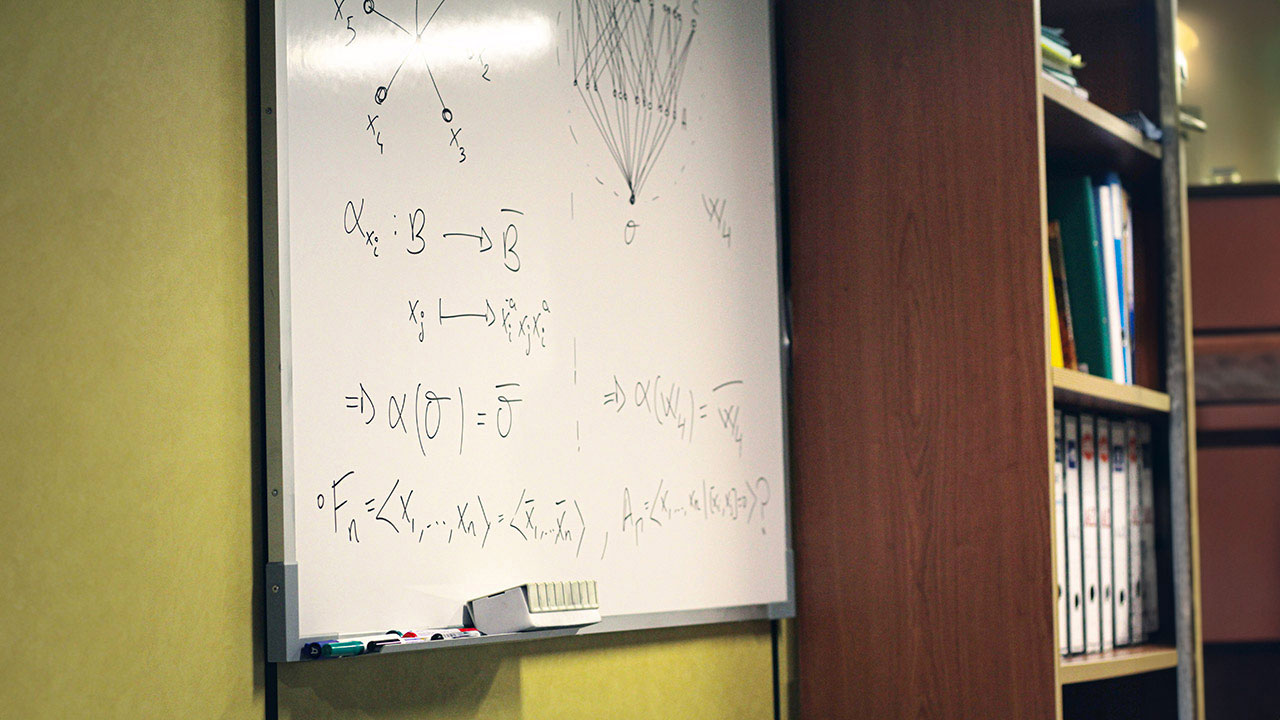 x₅
x₂
C
x₄
x₃
A
σ
W₄
α_{xᵢ} : B → B̄
xⱼ ↦ xᵢ⁻ᵃ xⱼ xᵢᵃ
⇒ α(σ) = σ̄
⇒ α(W₄) = W̄₄
∘ Fₙ = ⟨x₁, ..., xₙ⟩ = ⟨x̄₁, ... x̄ₙ⟩ , Aₙ = ⟨x₁, ..., xₙ | [xᵢ, xⱼ] = 0⟩?